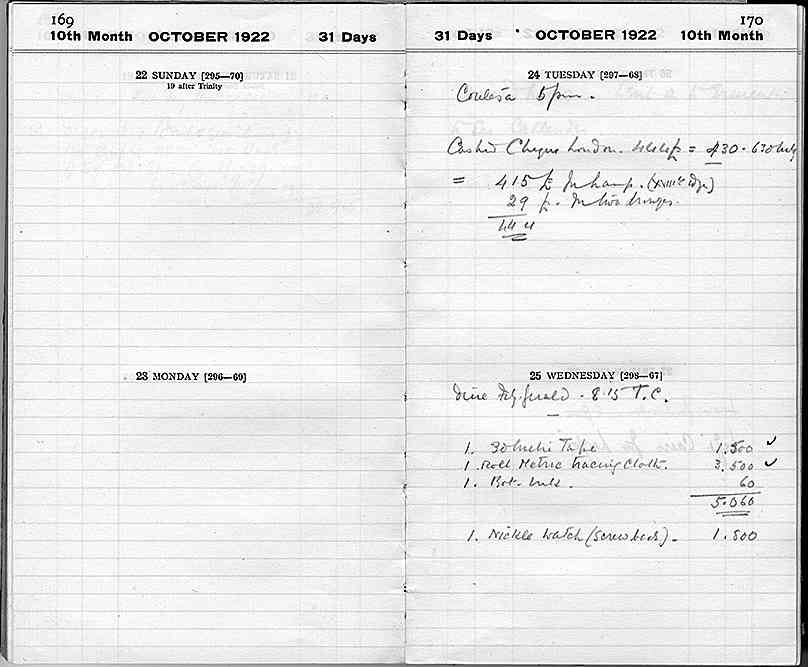 169
10th Month OCTOBER 1922 31 Days
22 SUNDAY [295—70]
19 after Trinity
23 MONDAY [296—69]
170
31 Days OCTOBER 1922 10th Month
24 TUESDAY [297—68]
5 pm.
Cashed Cheque London. = 430.
= 415 £ In hand.
29 p. In two
444
25 WEDNESDAY [298—67]
Dine Fitzgerald - 8.15 T.C.
1. 30 Metre Tape 1.500 ✓
1. Roll Metric tracing Cloth. 3.500 ✓
1. Bot. Ink. 60
5.060
1. Nickle Watch (screw back). 1.500